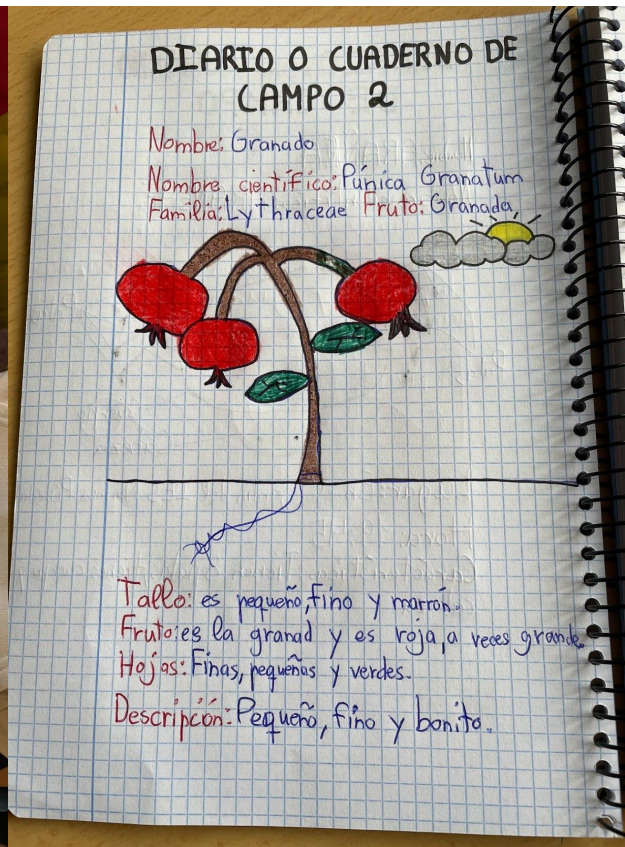 DIARIO O CUADERNO DE
CAMPO 2
Nombre: Granado
Nombre científico: Púnica Granatum
Familia: Lythraceae Fruto: Granada
Tallo: es pequeño, fino y marrón.
Fruto: es la granad y es roja, a veces grande.
Hojas: Finas, pequeñas y verdes.
Descripción: Pequeño, fino y bonito.